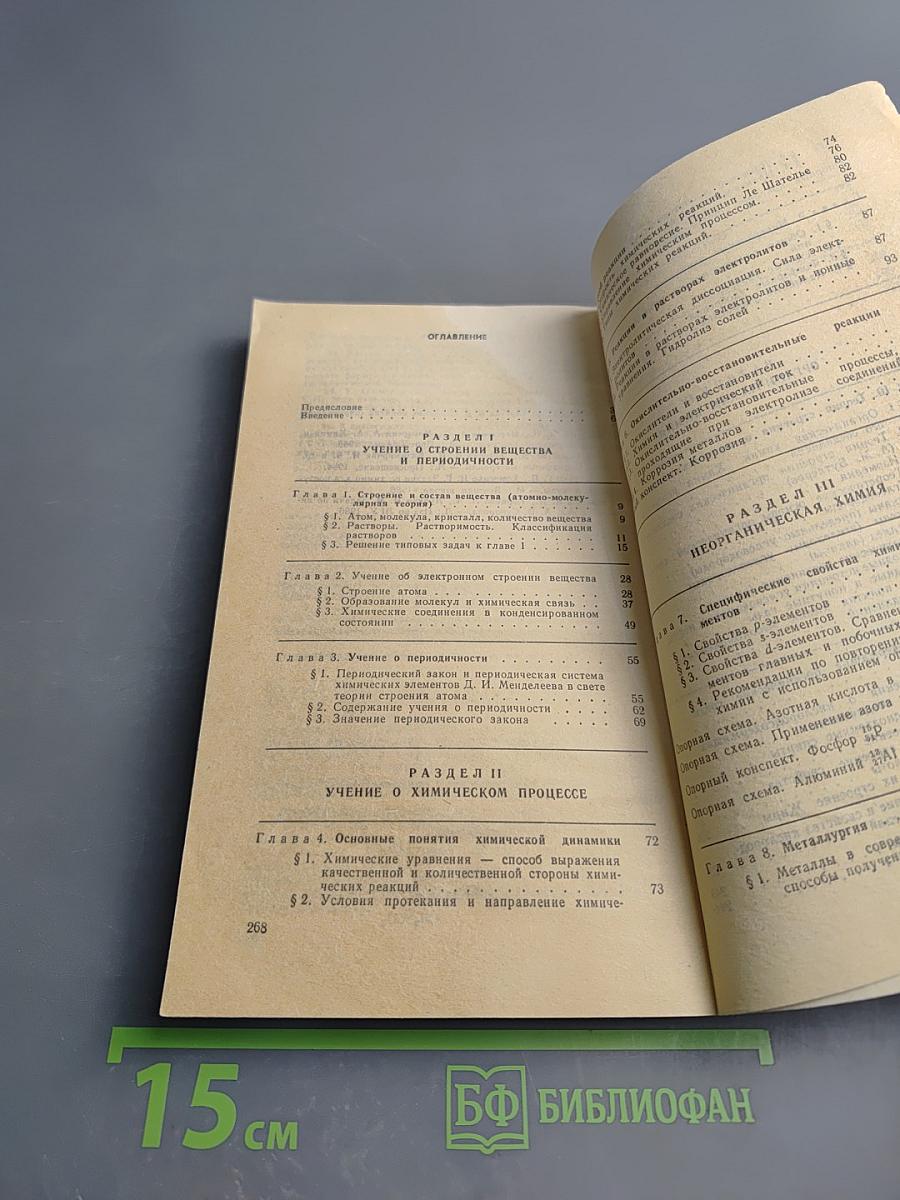 ОГЛАВЛЕНИЕ
Предисловие . . . . . . . . . . . . . . . 3
Введение . . . . . . . . . . . . . . . . 6
РАЗДЕЛ I
УЧЕНИЕ О СТРОЕНИИ ВЕЩЕСТВА
И ПЕРИОДИЧНОСТИ
Глава 1. Строение и состав вещества (атомно-молеку-
лярная теория) . . . . . . . . . . . 9
§ 1. Атом, молекула, кристалл, количество вещества 9
§ 2. Растворы. Растворимость. Классификация
растворов . . . . . . . . . . . . . 11
§ 3. Решение типовых задач к главе 1 . . . . . . 15
Глава 2. Учение об электронном строении вещества 28
§ 1. Строение атома . . . . . . . . . . . . 28
§ 2. Образование молекул и химическая связь . . 37
§ 3. Химические соединения в конденсированном
состоянии . . . . . . . . . . . . . 49
Глава 3. Учение о периодичности . . . . . . . . . 55
§ 1. Периодический закон и периодическая система
химических элементов Д. И. Менделеева в свете
теории строения атома . . . . . . . . . 55
§ 2. Содержание учения о периодичности . . . . 62
§ 3. Значение периодического закона . . . . . 69
РАЗДЕЛ II
УЧЕНИЕ О ХИМИЧЕСКОМ ПРОЦЕССЕ
Глава 4. Основные понятия химической динамики 72
§ 1. Химические уравнения — способ выражения
качественной и количественной стороны хими-
ческих реакций . . . . . . . . . . . . . 73
§ 2. Условия протекания и направление химиче-
268
реакции . . . . . . . . . 74
химических реакций. . . . . . . 76
равновесие. Принцип Ле Шателье 80
химическим процессом. . . . . 82
химических реакций. . . . . . 82
Реакции в растворах электролитов . . . . 87
Электролитическая диссоциация. Сила элект-
ролитов . . . . . . . . . . 87
Реакции в растворах электролитов и ионные
уравнения. Гидролиз солей . . . . . 93
Окислительно-восстановительные реакции
Окислители и восстановители . . . .
Химия и электрический ток . . . .
Окислительно-восстановительные процессы,
проходящие при электролизе соединений
Коррозия металлов . . . . .
конспект. Коррозия . . . .
РАЗДЕЛ III
НЕОРГАНИЧЕСКАЯ ХИМИЯ
7. Специфические свойства
ментов . . . . . .
§ 1. Свойства p-элементов . . .
§ 2. Свойства s-элементов . . .
§ 3. Свойства d-элементов.
ментов главных и побочных
§ 4. Рекомендации по
химии с использованием
Опорная схема. Азотная кислота в
Опорная схема. Применение азота
Опорный конспект. Фосфор
Опорная схема. Алюминий
Глава 8. Металлургия . . .
§ 1. Металлы в
способы
15 см
БФ БИБЛИОФАН